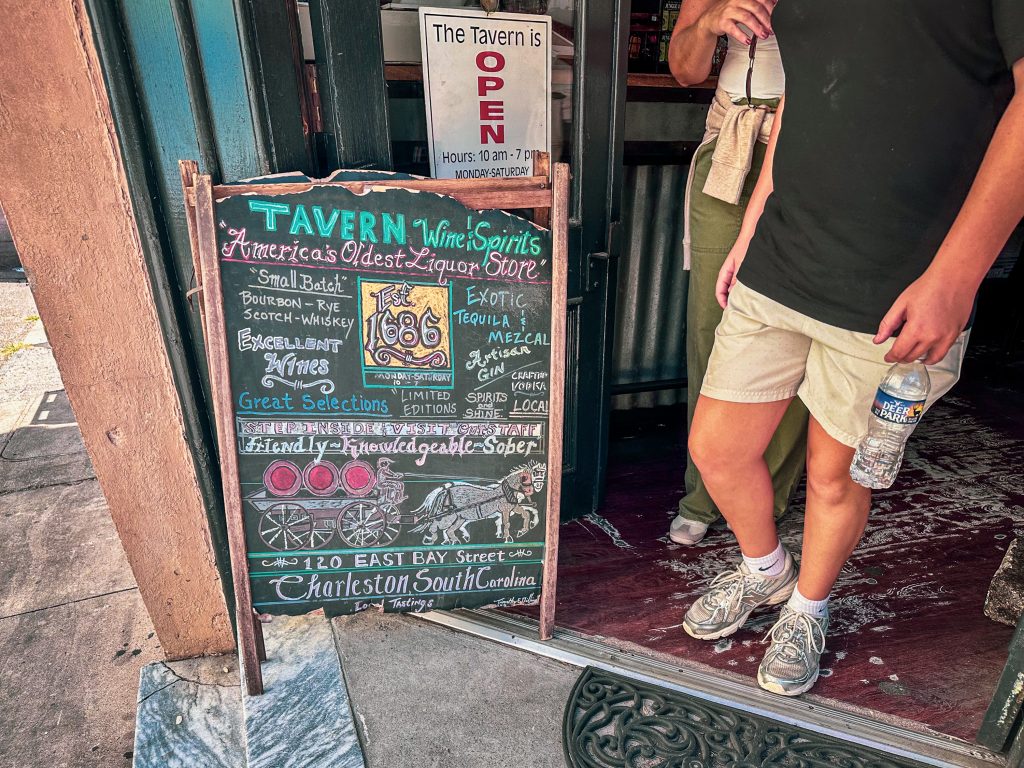 The Tavern is
OPEN
Hours: 10 am - 7 pm
MONDAY-SATURDAY
TAVERN Wine & Spirits
"America's Oldest Liquor Store"
"Small Batch"
BOURBON - RYE
SCOTCH-WHISKEY
EXCELLENT
Wines
Great Selections
Est
1686
MONDAY-SATURDAY
10 - 7
"LIMITED
EDITIONS
EXOTIC
TEQUILA &
MEZCAL
Artisan
GIN
CRAFTED
VODKA
SPIRITS
AND
SHINE
LOCAL
STEP INSIDE & VISIT OUR STAFF
Friendly ~ Knowledgeable ~ Sober
120 EAST BAY Street
Charleston South Carolina
TASTINGS
DEER
PARK